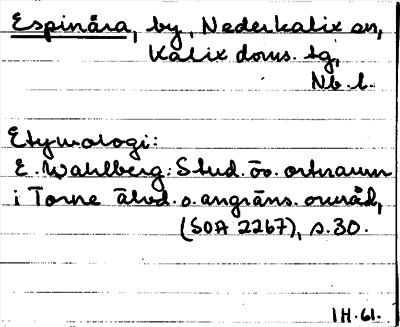 Espinåra, by, Nederkalix sn,
Kalix doms. tg,
Nb. l.
Etymologi:
E. Wahlberg: Stud. öv. ortnamn
i Torne älvd. o. angräns. område,
(SOA 2267), s. 30.
IH. 61.